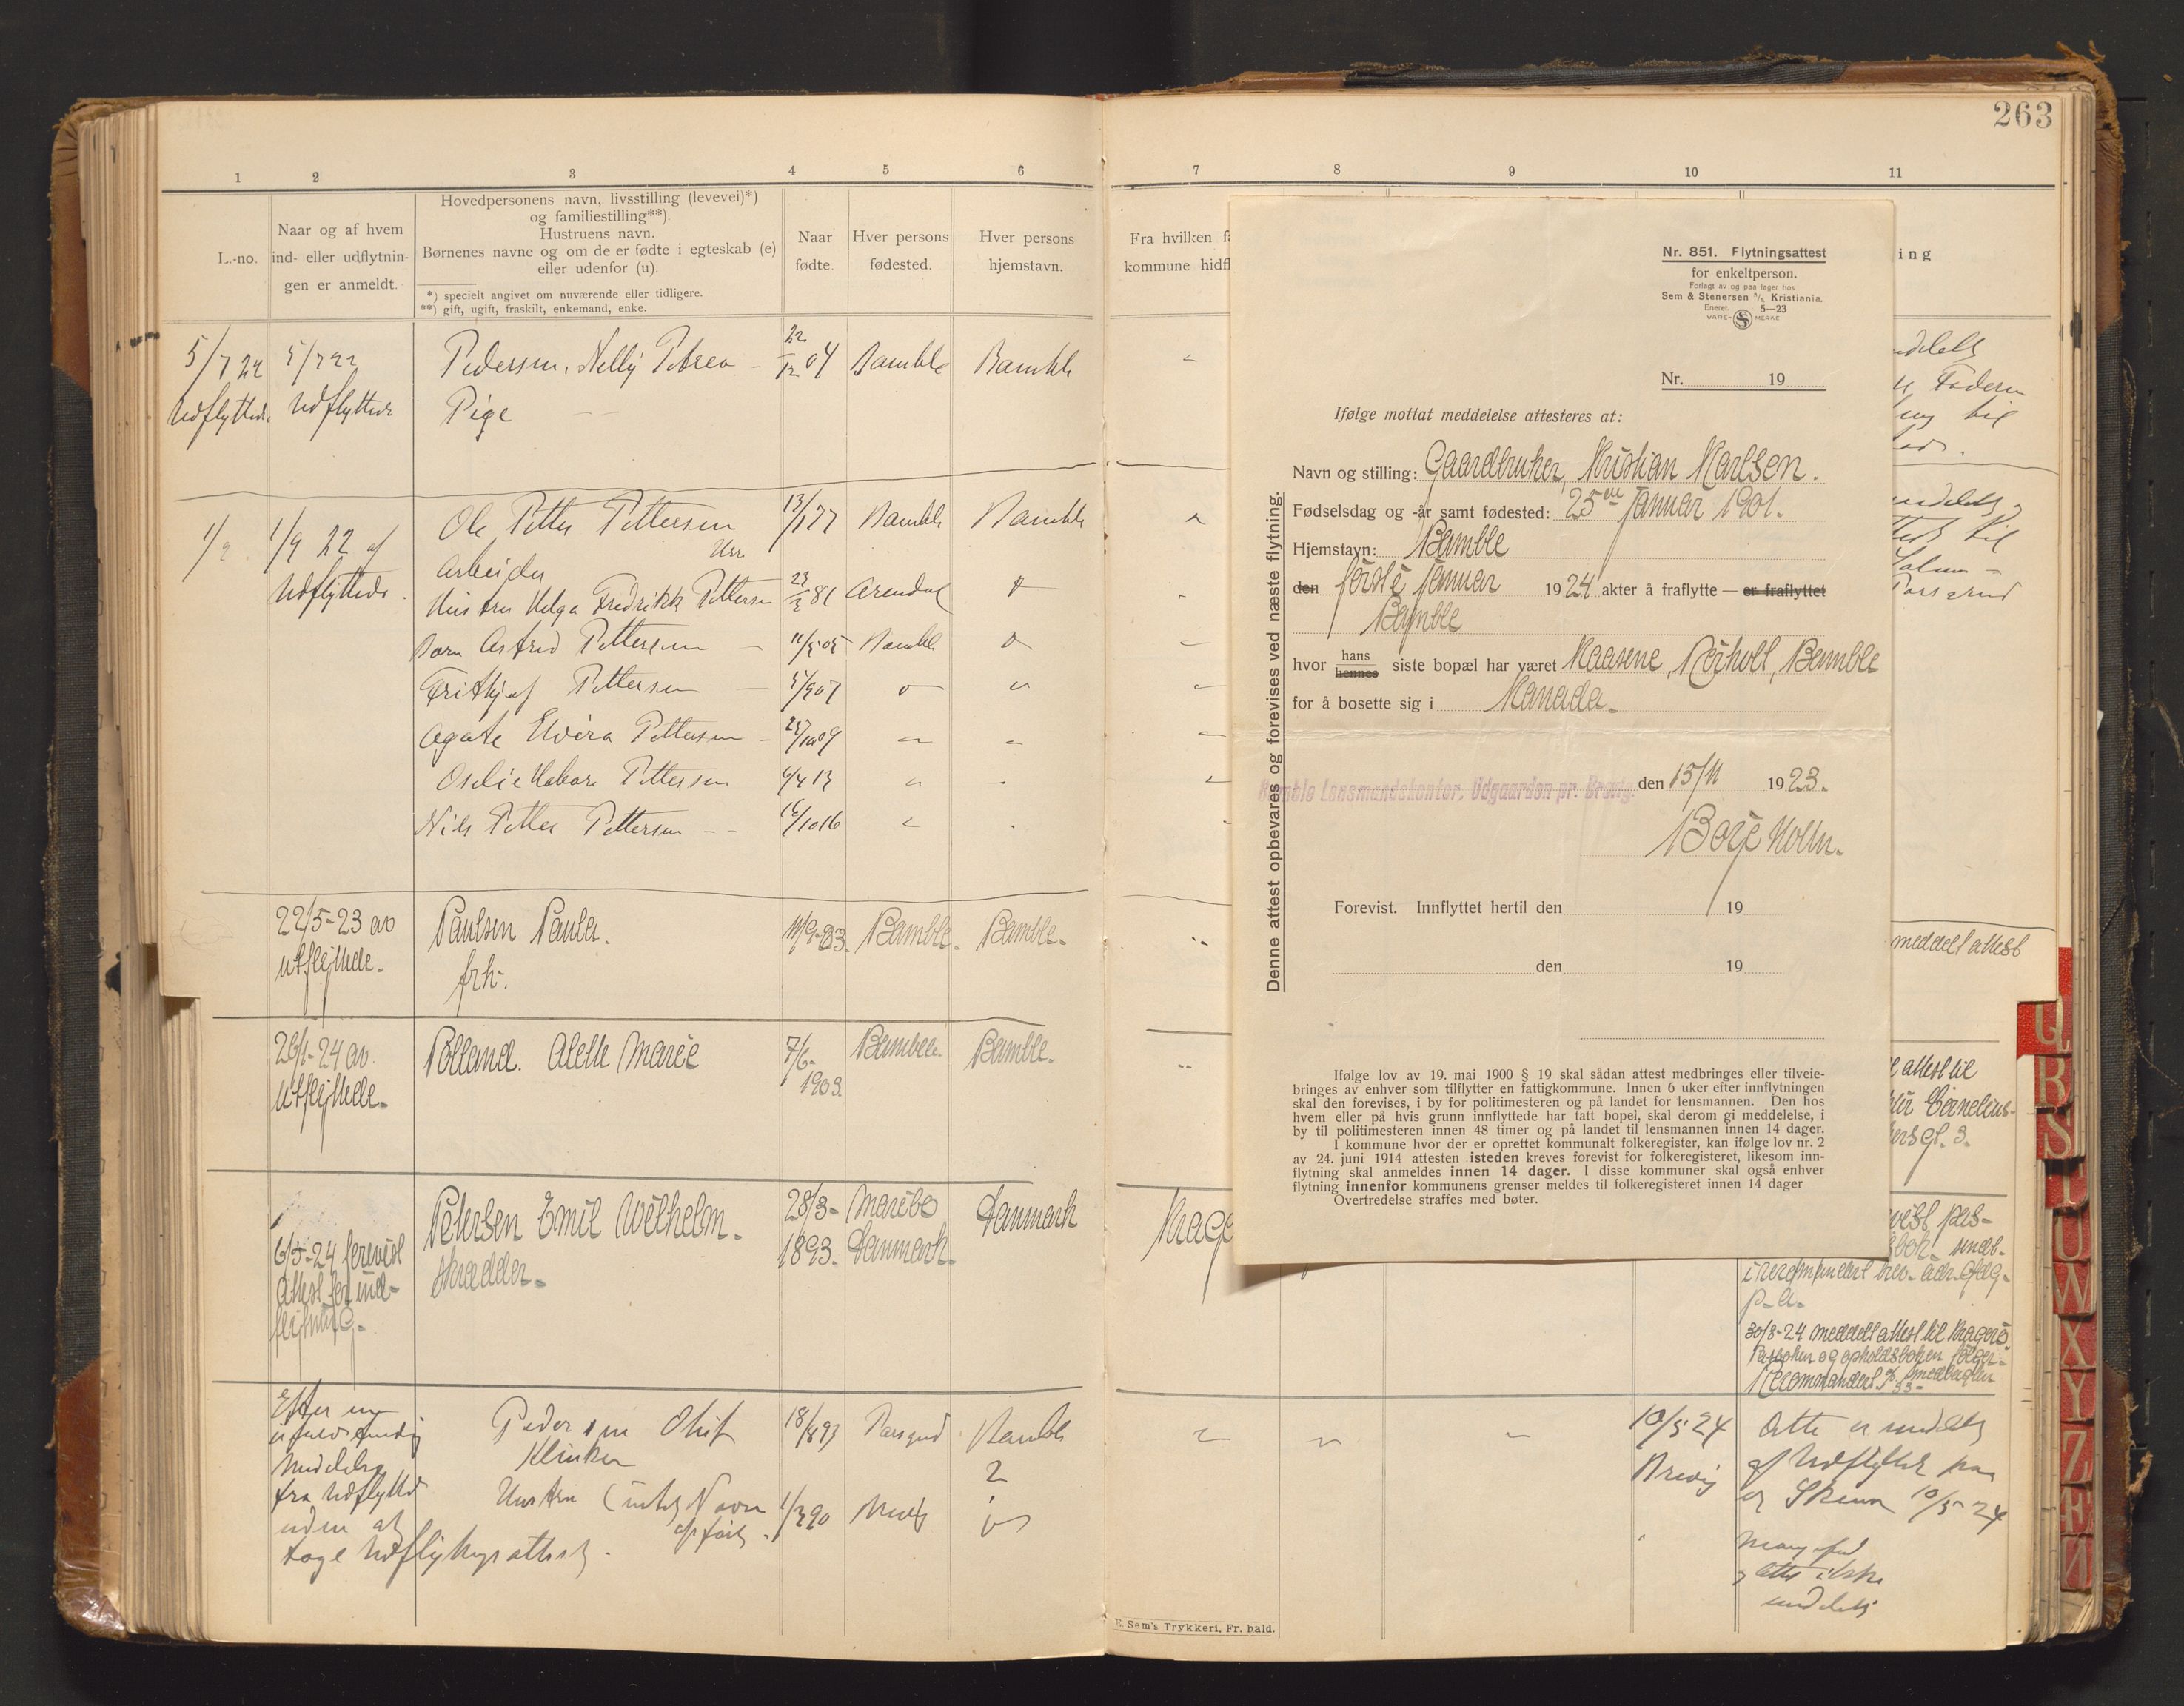 263
1 2 3 4 5 6 7 8 9 10 11
L.-no.
Naar og af hvem
ind- eller udflytnin-
gen er anmeldt.
Hovedpersonens navn, livsstilling (levevei)*)
og familiestilling**).
Hustruens navn.
Børnenes navne og om de er fødte i egteskab (e)
eller udenfor (u).
*) specielt angivet om nuværende eller tidligere.
**) gift, ugift, fraskilt, enkemand, enke.
Naar
fødte.
Hver persons
fødested.
Hver persons
hjemstavn.
Fra hvilken f
kommune hidfl
ing
5/7 22 5/7 22 Pedersen, Nelly Petrea 22/12 04 Bamble Bamble
Udflyttede. Udflyttede Pige
1/9 1/9 22 af Ole Petter Pettersen 13/1 77 Bamble Bamble
Udflyttede. Arbeider
Hustru Helga Fredrikke Pettersen 23/3 81 Arendal
Barn Astrid Pettersen 11/5 05 Bamble
Fritjof Pettersen 5/9 07
Agate Elvira Pettersen 25/10 09
Pettersen 6/4 13
Nils Petter Pettersen 16/10 16
22/5-23 av Paulsen Paula. 11/9-03. Bamble. Bamble.
utflyttede. frk.
meddelt attest
26/1-24 av Polland. Alette Marie 7/6- Bamble Bamble.
utflyttede. 1903.
attest til
Cornelius-
gt. 3.
6/5-24 forevist Petersen Emil Wilhelm. 28/3- Maribo Danmark Krage
attest for ind- skrædder. 1893. Danmark.
flytning.
p.a.
30/8-24 meddelt attest til Kragerø
Passboken og opholdsboken følger
Recommandert
Efter
meddelelse
fra Udflyttede
uden at
tage Udflytningsattest.
Pedersen Oluf 18/8 93 Porsgrund Bamble
Klinker
Hustru (intet Navn 1/3 90
opført.
10/5 24
Brevig
Atte er meddelt
af Udflyttet
Skema 10/5-24
meddelt
E. Sem's Trykkeri, Fr.hald.
Q R S T U W X Y Z Æ Ø
Nr. 851. Flytningsattest
for enkeltperson.
Forlagt av og paa lager hos
Sem & Stenersen A/S Kristiania.
Eneret. 5—23
VARE- S MERKE
Nr. 19
Ifølge mottat meddelelse attesteres at:
Navn og stilling: Gaardbruker, Kristian Karlsen.
Fødselsdag og -år samt fødested: 25de januar 1901.
Hjemstavn: Bamble
den første januar 1924 akter å fraflytte — er fraflyttet
Bamble
hvor hans hennes siste bopæl har været Kaasene, Rørholt, Bamble
for å bosette sig i Kanada.
Bamble Lensmandskontor, Udgaarden pr. Brevig. den 15/11 1923.
Borje Holm.
Forevist. Innflyttet hertil den 19
den 19
Denne attest opbevares og forevises ved næste flytning.
Ifølge lov av 19. mai 1900 § 19 skal sådan attest medbringes eller tilveie-
bringes av enhver som tilflytter en fattigkommune. Innen 6 uker efter innflytningen
skal den forevises, i by for politimesteren og på landet for lensmannen. Den hos
hvem eller på hvis grunn innflyttede har tatt bopel, skal derom gi meddelelse, i
by til politimesteren innen 48 timer og på landet til lensmannen innen 14 dager.
I kommune hvor der er oprettet kommunalt folkeregister, kan ifølge lov nr. 2
av 24. juni 1914 attesten isteden kreves forevist for folkeregisteret, likesom inn-
flytning skal anmeldes innen 14 dager. I disse kommuner skal også enhver
flytning innenfor kommunens grenser meldes til folkeregisteret innen 14 dager
Overtredelse straffes med bøter.